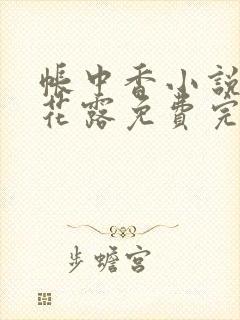 帳中香小說
花露免費完
步蟾宮